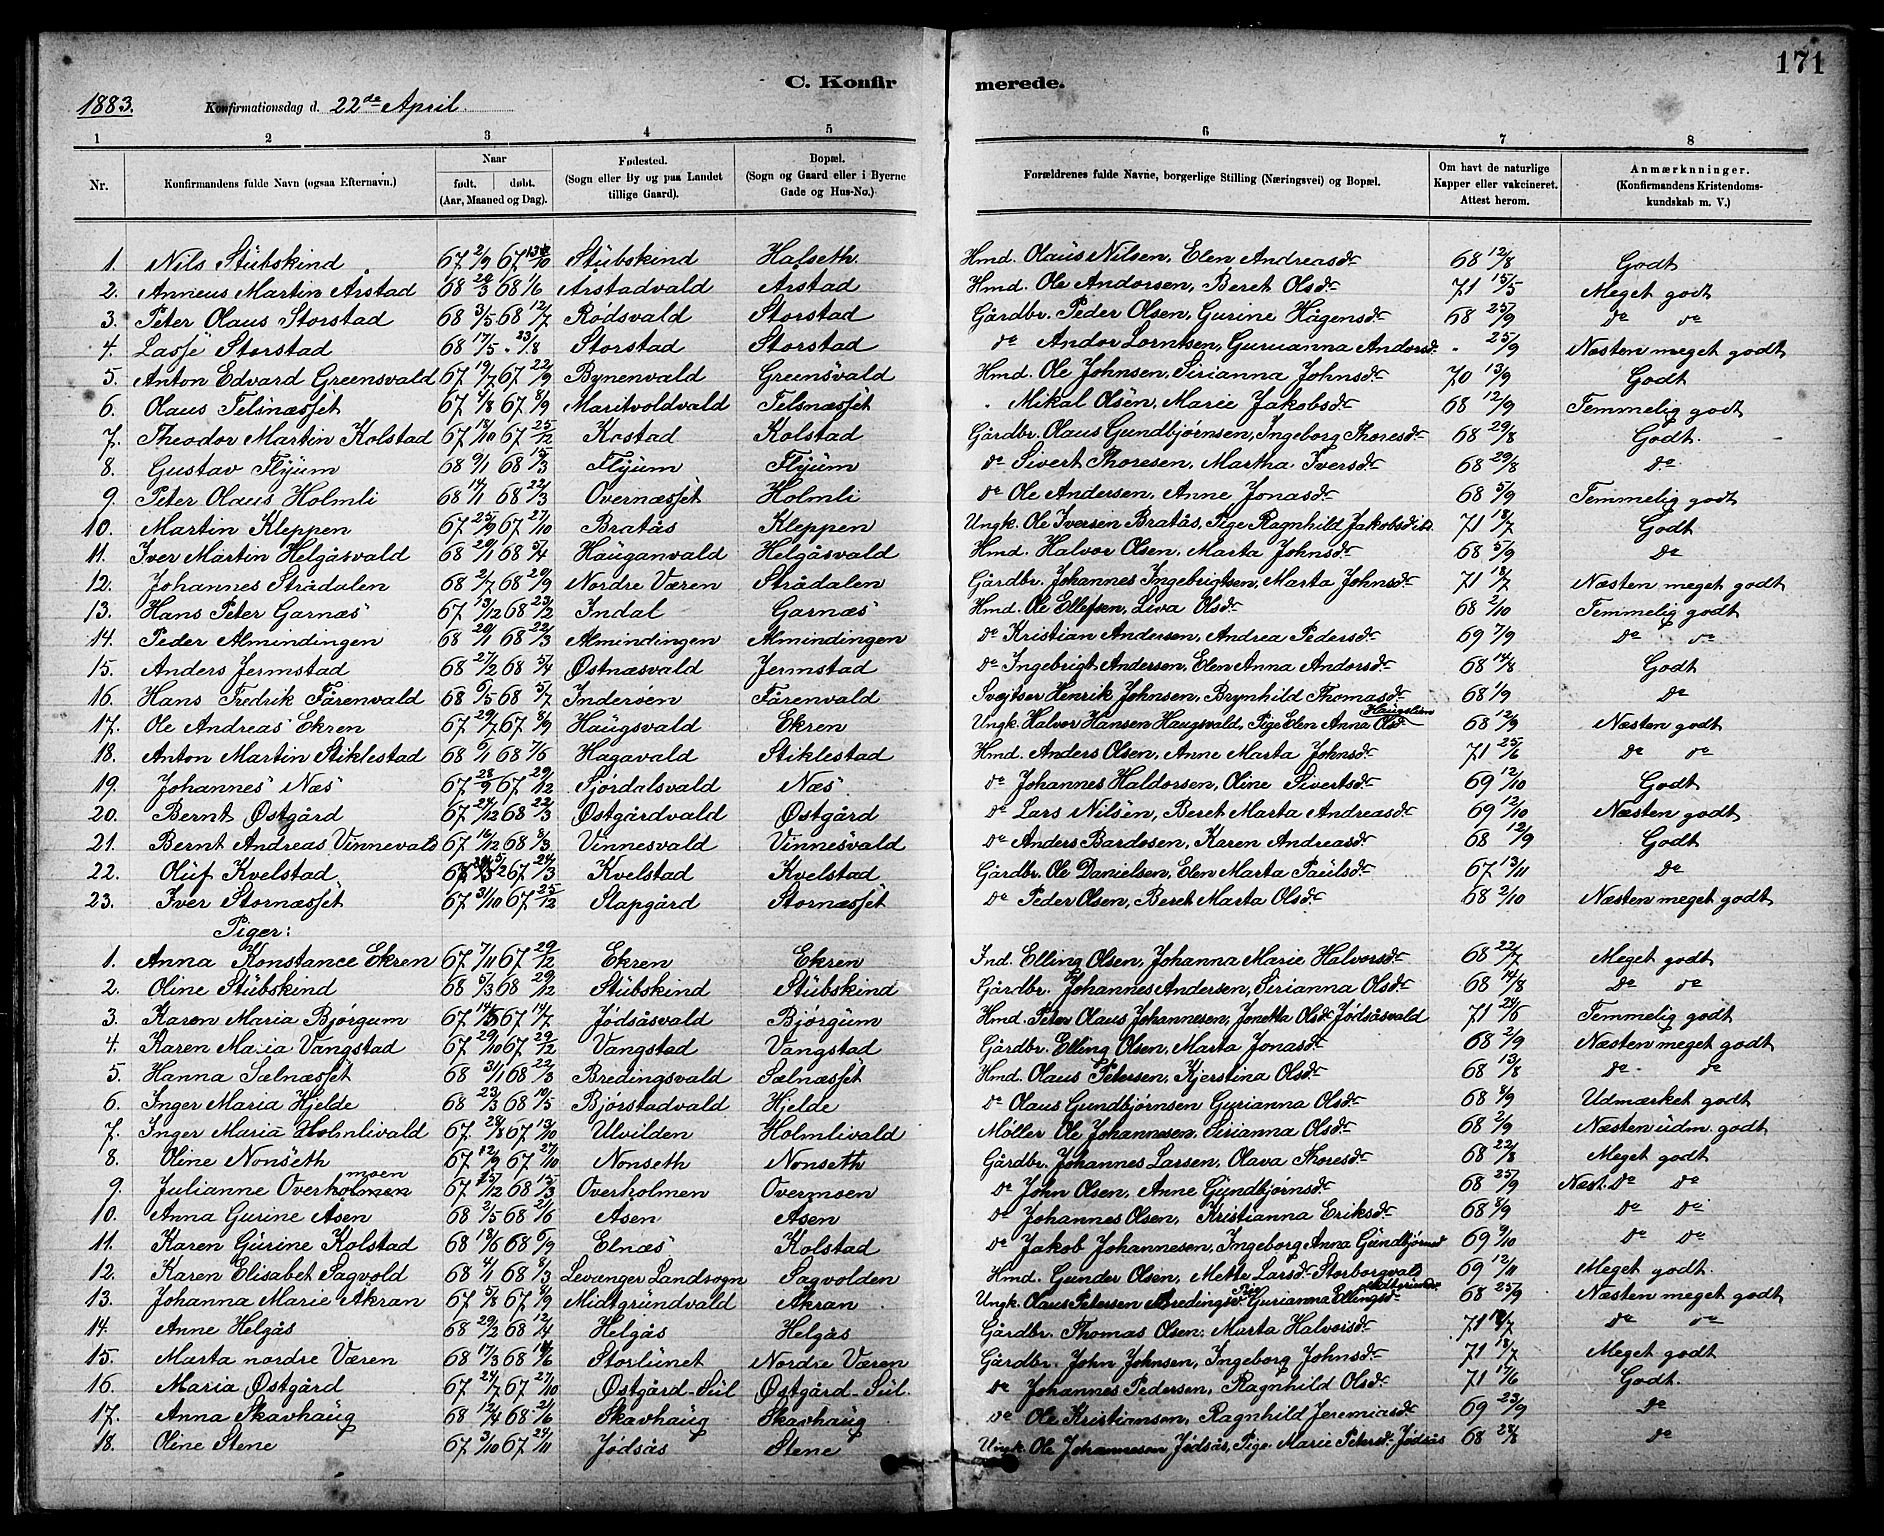 171
C. Konfirmerede.
1883. Konfirmationsdag d. 22de April.
1 2 3 4 5 6 7 8
Nr. Konfirmandens fulde Navn (ogsaa Efternavn.) Naar født. døbt. (Aar, Maaned og Dag). Fødested. (Sogn eller By og paa Landet tillige Gaard). Bopæl. (Sogn og Gaard eller i Byerne Gade og Hus-No.) Forældrenes fulde Navne, borgerlige Stilling (Næringsvei) og Bopæl. Om havt de naturlige Kapper eller vakcineret. Attest herom. Anmærknninger. (Konfirmandens Kristendomskundskab m. V.)
1. Nils Stübskind 67 2/9 67 Stübskind Halseth Hmd. Olaüs Nilsen, Elen Andreasdr 68 12/8 Godt
2. Anneus Martin Årstad 68 20/3 68 1/6 Årstadvald Årstad Hmd. Ole Andorsen, Beret Olsdr 71 15/5 Meget godt
3. Peter Olaus Storstad 68 3/5 68 12/7 Rødsvald Storstad Gårdbr. Peder Olsen, Gurine Hågensdr 68 25/9 do do
4. Lasse Storstad 68 17/5 - 23/8 Storstad Storstad do Andor Lorntsen, Guruanna Andorsdr - 25/9 Næsten meget godt
5. Anton Edvard Greensvald 67 19/7 67 22/9 Bynenvald Greensvald Hmd. Ole Johnsen, Sirianna Johnsdr 70 13/9 Godt
6. Olaus Telsnæsset 67 4/8 67 8/9 Maritvoldvald Telsnæsset - Mikal Olsen, Marie Jakobsdr 68 12/9 Temmelig godt
7. Theodor Martin Kolstad 67 18/10 67 25/12 Kostad Kolstad Gårdbr. Olaus Gundbjørnsen, Ingeborg Thoresdr 68 29/8 Godt.
8. Gustav Flyüm 68 9/1 68 15/3 Flyüm Flyüm do Sivert Thoresen, Martha Iversdr 68 29/8 do
9. Peter Olaus Holmli 68 14/1 68 22/3 Overnæsset Holmli do Ole Andersen, Anne Jonasdr 68 5/9 Temmelig godt
10. Martin Kleppen 67 25/9 67 27/10 Bratås Kleppen Ungk. Ole Iversen Bratås, Pige Ragnhild Jakobsdtr 71 18/7 Godt
11. Iver Martin Helgåsvald 68 20/1 68 5/4 Haüganvald Helgåsvald Hmd. Halvor Olsen, Marta Johnsdr 68 5/9 do
12. Johannes Strådalen 68 2/7 68 20/9 Nordre Væren Strådalen Gårdbr. Johannes Ingebrigtsen, Marta Johnsdr 71 18/7 Næsten meget godt
13. Hans Peter Garnæs 67 13/12 68 23/2 Indal Garnæs Hmd. Ole Ellefsen, Liva Olsdr 68 2/10 Temmelig godt
14. Peder Almindingen 68 20/1 68 22/3 Almindingen Almindingen do Kristian Andersen, Andrea Pedersdr 69 7/9 do do
15. Anders Jermstad 68 27/2 68 5/4 Østnæsvald Jermstad do Ingebrigt Andersen, Elen Anna Andorsdr 68 14/8 Godt
16. Hans Fredrik Fårenvald 68 6/5 68 5/7 Inderøen Fårenvald Svejtser Henrik Johnsen, Brynhild Thomasdr 68 1/9 do
17. Ole Andreas Ekren 67 29/7 67 8/9 Haügsvald Ekren Ungk. Halvor Hansen Haugsvald, Pige Elen Anna Olsdr Haugslien 68 12/9 Næsten godt
18. Anton Martin Stiklestad 68 6/1 68 7/6 Hagavald Stiklestad Hmd. Anders Olsen, Anne Marta Johnsdr 71 25/6 do do
19. Johannes Næs 67 28/9 67 29/12 Sjørdalsvald Næs do Johannes Haldorsen, Oline Sivertsdr 69 12/10 Godt
20. Bernt Østgård 67 24/12 68 22/3 Østgårdvald Østgård do Lars Nilsen, Beret Marta Andreasdr 69 12/10 Næsten godt
21. Bernt Andreas Vinnevald 67 16/12 68 8/3 Vinnesvald Vinnesvald do Anders Bardosen, Karen Andreasdr 68 12/9 Godt
22. Olüf Kvelstad 67 24/3 Kvelstad Kvelstad Gårdbr. Ole Danielsen, Elen Marta Paülsdr 67 13/11 do
23. Iver Stornæsset 67 31/10 67 25/12 Slapgård Stornæsset do Peder Olsen, Beret Marta Olsdr 68 2/10 Næsten meget godt
Piger:
1. Anna Konstance Ekren 67 7/11 67 29/12 Ekren Ekren Ind. Elling Olsen, Johanna Marie Halvorsdr 68 22/7 Meget godt
2. Oline Stübskind 68 5/3 68 29/12 Stübskind Stübskind Gårdbr. Johannes Andersen, Sirianna Olsdr 68 14/8 do do
3. Karen Maria Bjørgum 67 14/5 67 14/7 Jødsåsvald Bjørgüm Hmd. Peter Olaus Johannesen, Jonetta Olsdr Jødsåsvald 71 24/6 Temmelig godt
4. Karen Maria Vangstad 67 29/10 67 29/12 Vangstad Vangstad Gårdbr. Elling Olsen, Marta Jonasdr 68 2/9 Næsten meget godt
5. Hanna Sælnæsset 68 31/1 68 22/3 Bredingsvald Sælnæsset Hmd. Olaus Petersen, Kjerstina Olsdr 68 13/8 do do
6. Inger Maria Hjelde 68 23/3 68 10/5 Bjørstadvald Hjelde do Olaus Gundbjørnsen Gurianna Olsdr 68 8/9 Udmærket godt
7. Inger Maria Holmlivald 67 28/8 67 13/10 Ulvilden Holmlivald Møller Ole Johannesen, Sirianna Olsdr 68 2/9 Næsten üdm. godt
8. Oline Nonseth 67 12/9 67 27/10 Nonseth Nonseth Gårdbr. Johannes Larsen, Olava Thoresdr 68 22/8 Meget godt
9. Julianne Overholmen moen 67 25/12 68 15/3 Overholmen Overmoen do John Olsen, Anne Gündbjørnsdr 68 25/9 Næst. do do
10. Anna Gurine Åsen 68 2/5 68 21/6 Åsen Åsen do Johannes Olsen, Kristianna Eriksdr 68 8/9 do do
11. Karen Gürine Kolstad 68 18/6 68 6/9 Elnæs Kolstad do Jakob Johannesen, Ingeborg Anna Gündbjørnsd 69 9/10 do do
12. Karen Elisabet Sagvold 68 4/1 68 8/3 Levanger Landsogn Sagvolden Hmd. Gunder Olsen, Mette Larsdr Storborgvald 69 12/11 Meget godt.
13. Johanna Marie Åkran 67 5/8 67 8/9 Midtgründvald Åkran Ungk. Olaus Petersen Bredingsv. Pige Gurianna Ellingsdr 68 25/9 Næsten meget godt
14. Anne Helgås 68 29/2 68 12/4 Helgås Helgås Gårdbr. Thomas Olsen, Marta Halvorsdr 71 18/7 do do
15. Marta nordre Væren 68 17/3 68 14/6 Storlünet Nordre Væren Gårdbr. John Johnsen, Ingeborg Johnsdr 71 18/7 Meget godt
16. Maria Østgård 67 24/7 67 27/10 Østgård-Sül Østgård-Sül. do Johannes Pedersen, Ragnhild Olsdr 71 17/6 Godt.
17. Anna Skavhaüg 68 12/4 68 21/6 Skavhaüg Skavhaüg do Ole Kristiansen, Ragnhild Jeremiasdr 69 23/9 do
18. Oline Stene 67 3/10 67 24/11 Jødsås Stene Ungk. Ole Johannesen Jødsås, Pige Marie Petersdr Jødsås 68 28/8 do